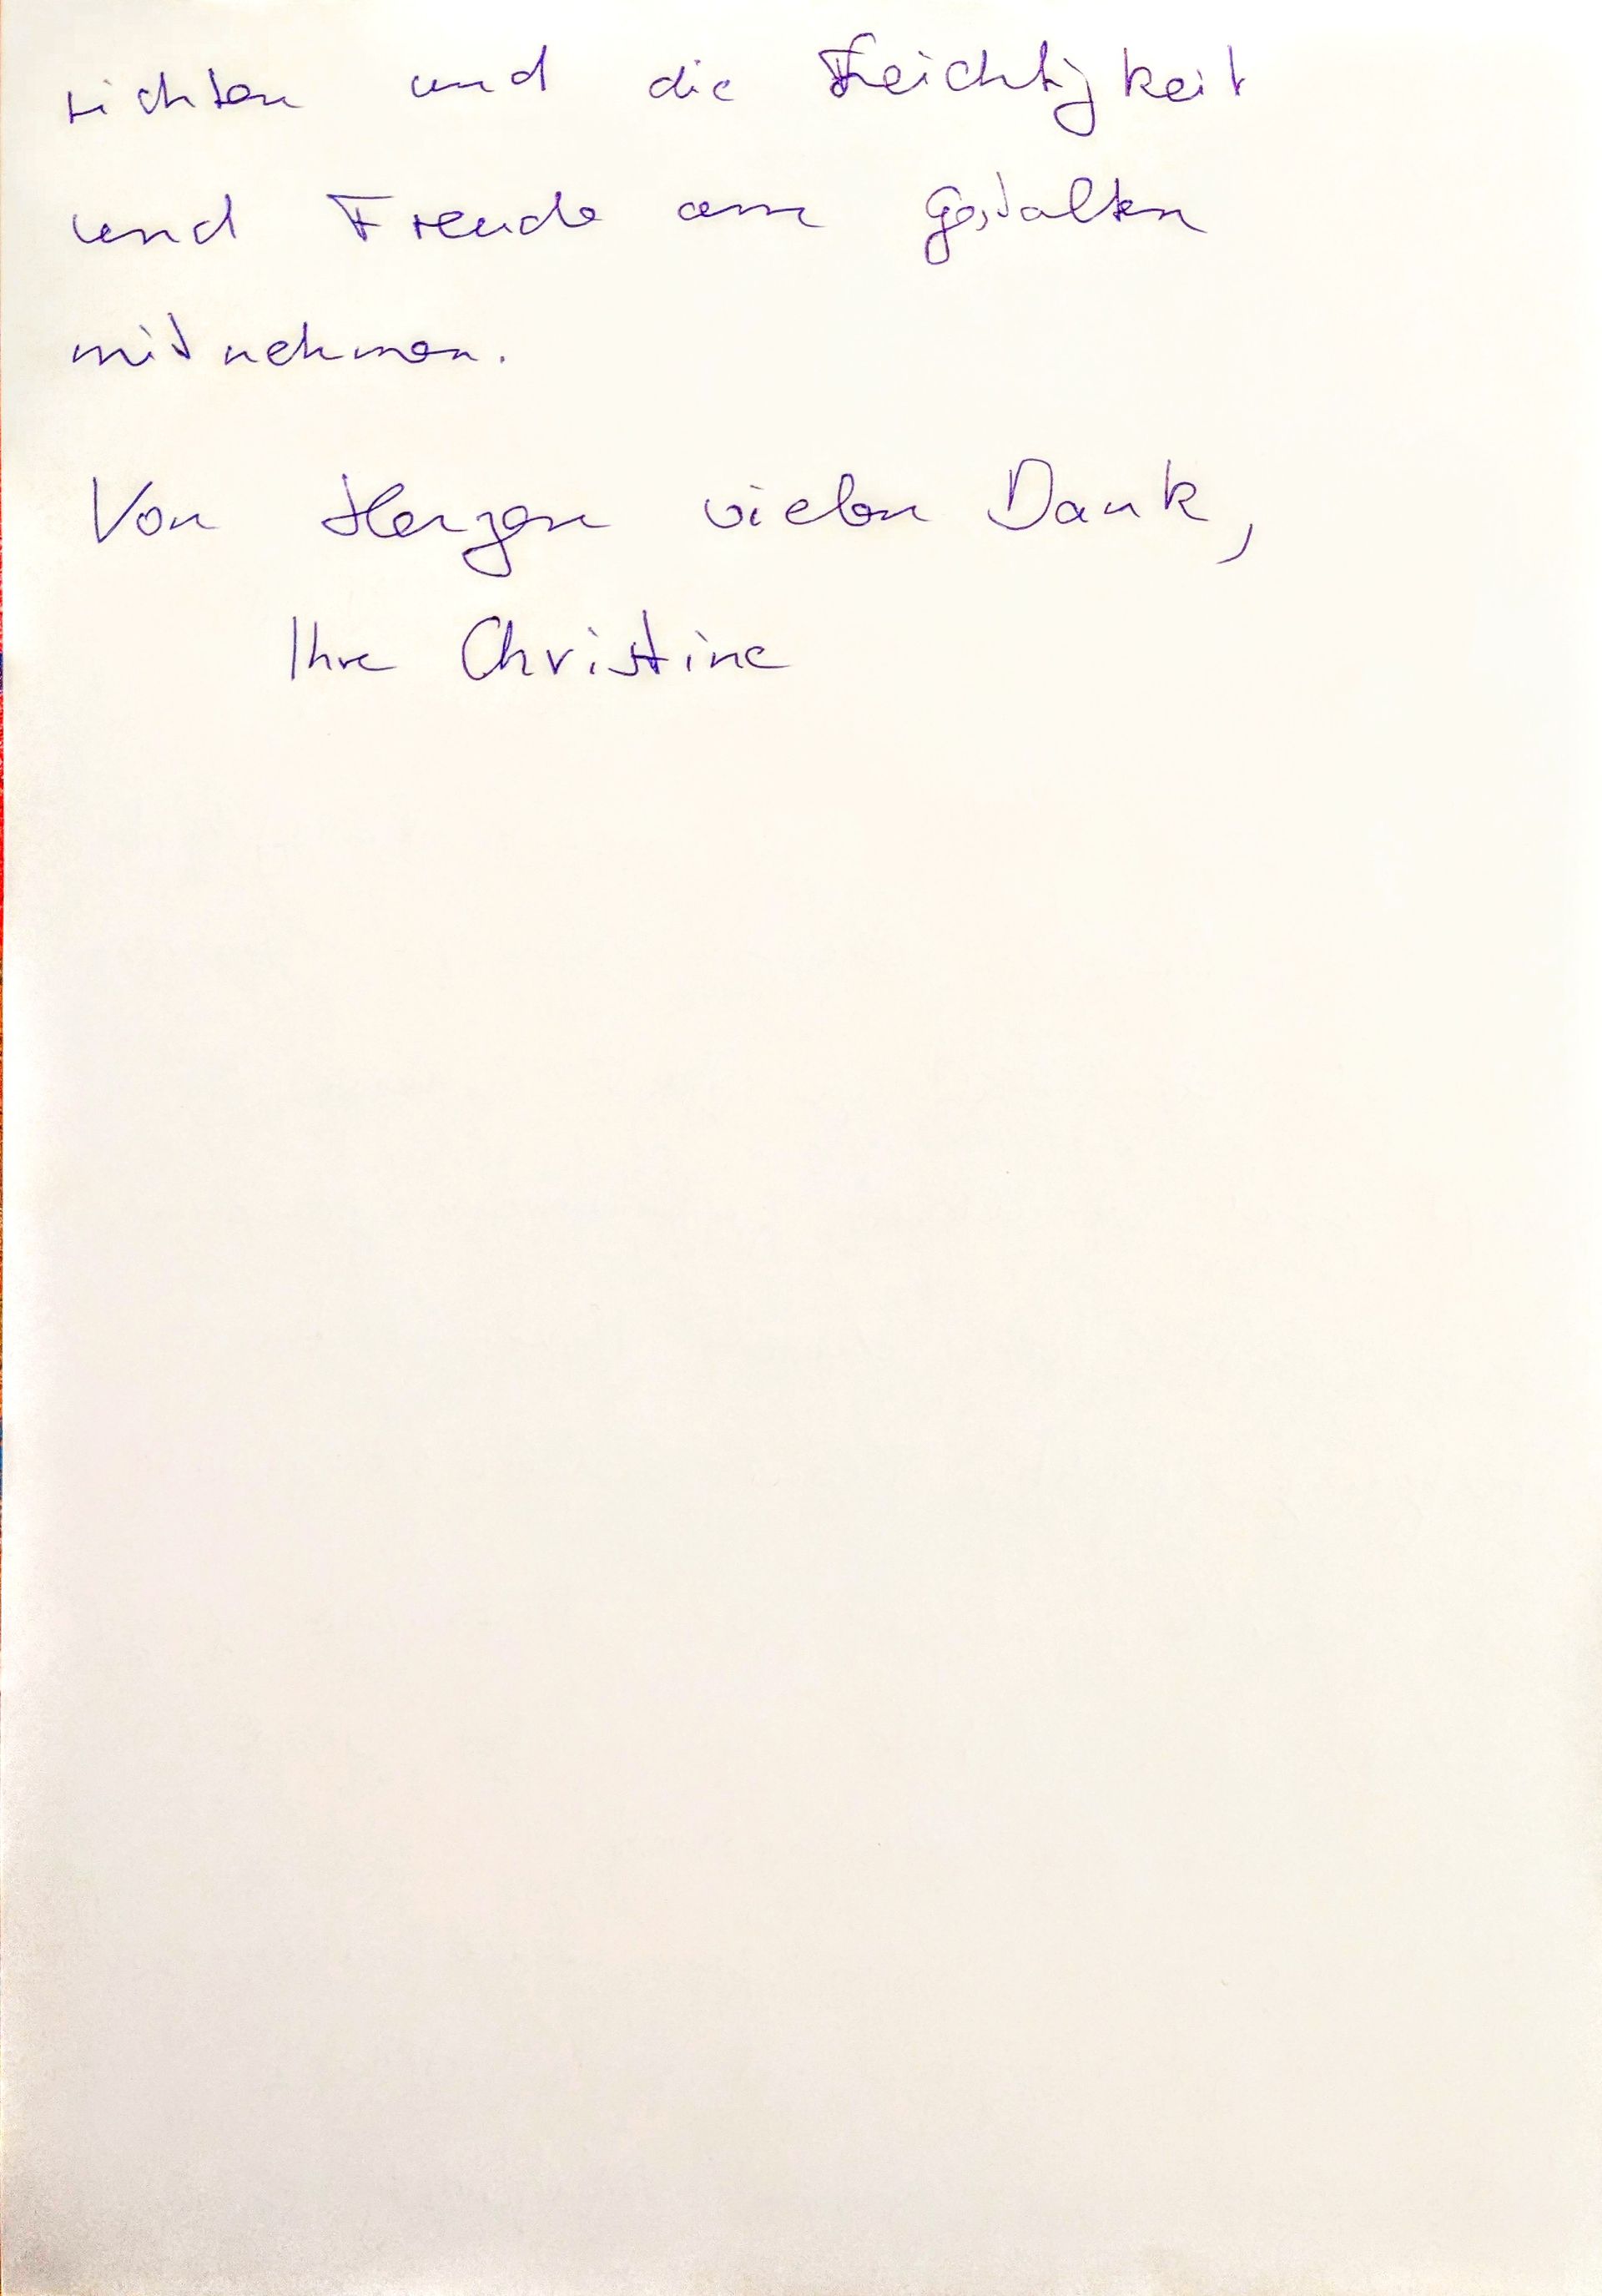 richten und die Leichtigkeit
und Freude am Gestalten
mitnehmen.
Von Herzen vielen Dank,
Ihre Christine